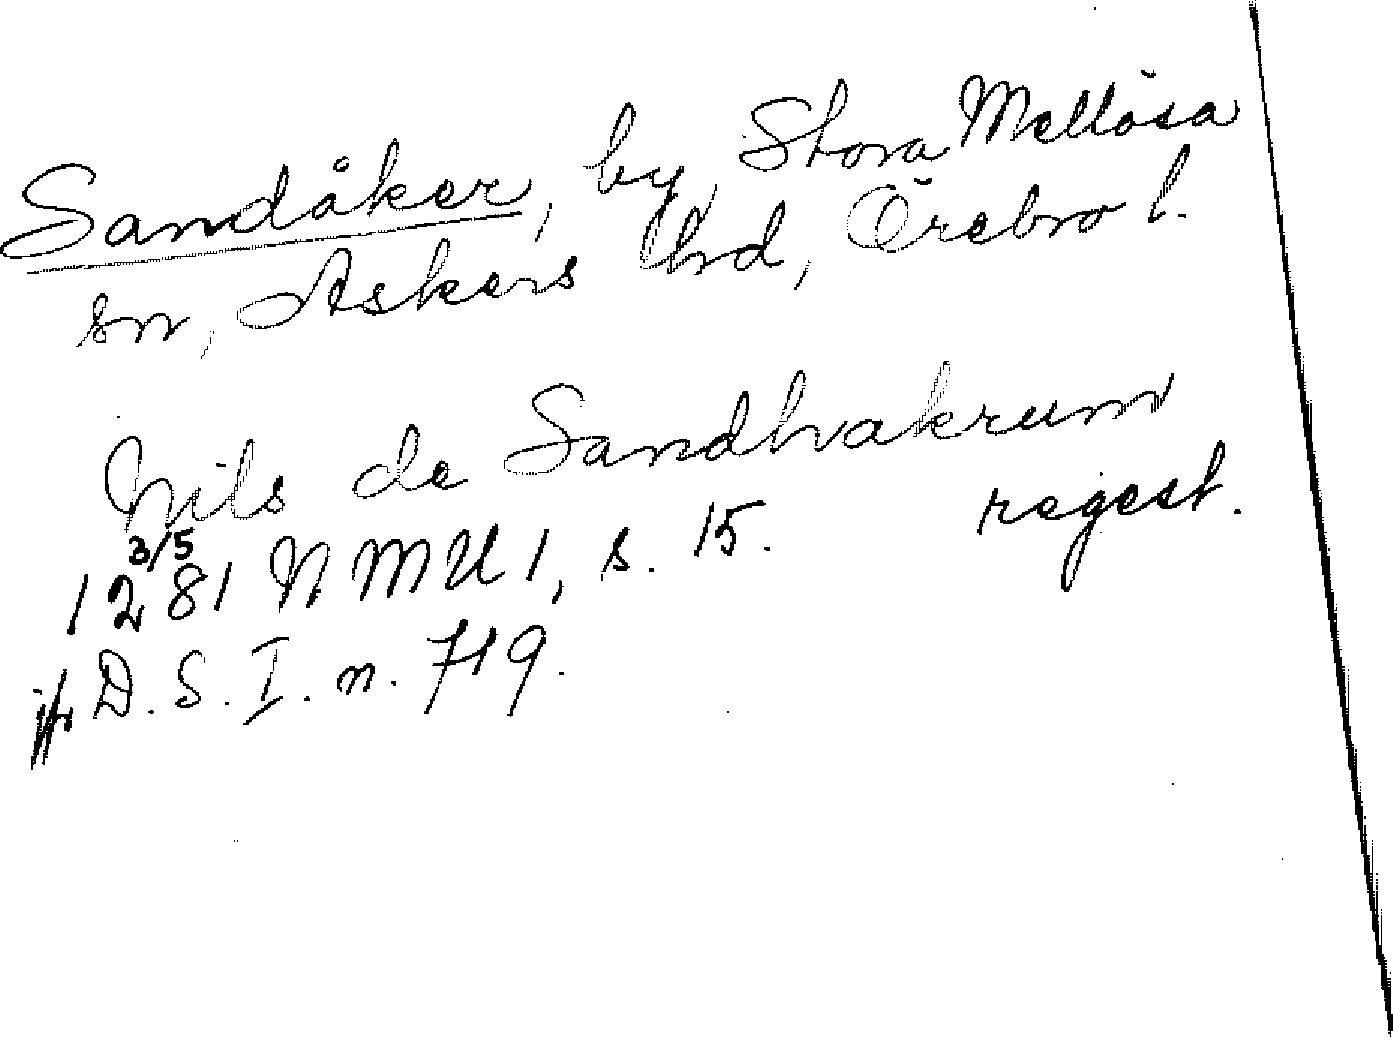 Sandåker, by, Stora Mellösa
sn, Askers hrd, Örebro l.
Nils de Sandhvakrum
3/5
1281 NMU 1, s. 15. regest.
jfr D. S. I. n. 719.